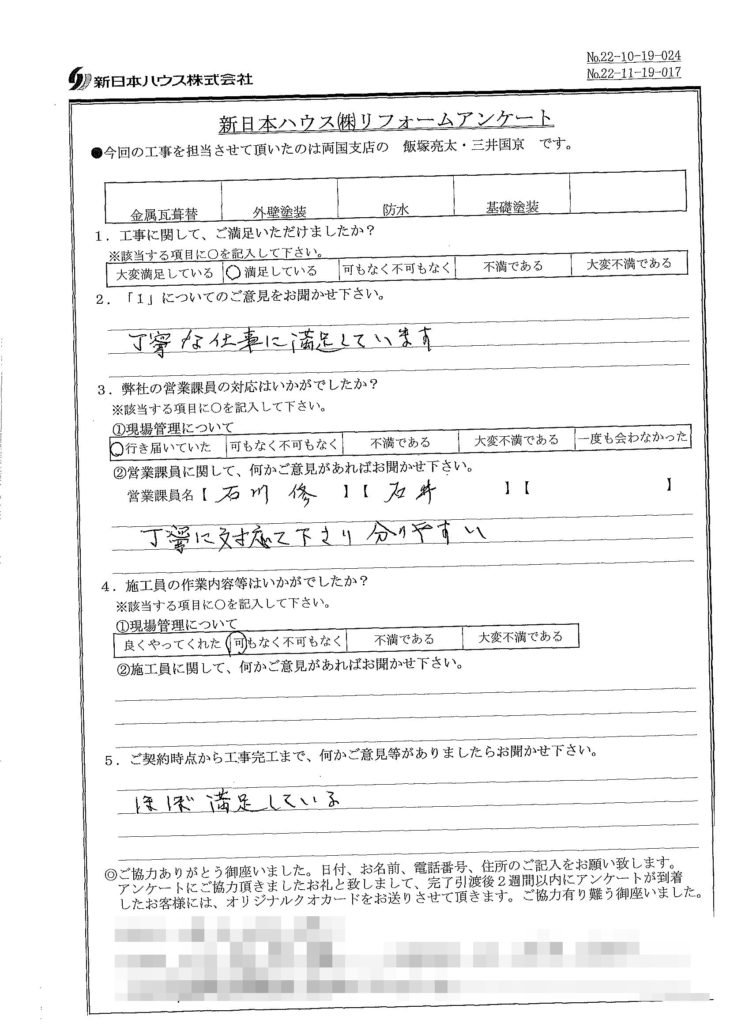 新日本ハウス株式会社
No.22-10-19-024
No.22-11-19-017
新日本ハウス㈱リフォームアンケート
●今回の工事を担当させて頂いたのは両国支店の 飯塚亮太・三井国京 です。
金属瓦葺替 外壁塗装 防水 基礎塗装
1．工事に関して、ご満足いただけましたか？
※該当する項目に○を記入して下さい。
大変満足している ○満足している 可もなく不可もなく 不満である 大変不満である
2．「1」についてのご意見をお聞かせ下さい。
丁寧な仕事に満足しています
3．弊社の営業課員の対応はいかがでしたか？
※該当する項目に○を記入して下さい。
①現場管理について
○行き届いていた 可もなく不可もなく 不満である 大変不満である 一度も会わなかった
②営業課員に関して、何かご意見があればお聞かせ下さい。
営業課員名【 石川 修 】【 石井 】【 】
丁寧に対応て下さり 分りやすい
4．施工員の作業内容等はいかがでしたか？
※該当する項目に○を記入して下さい。
①現場管理について
良くやってくれた 可もなく不可もなく 不満である 大変不満である
②施工員に関して、何かご意見があればお聞かせ下さい。
5．ご契約時点から工事完工まで、何かご意見等がありましたらお聞かせ下さい。
ほぼ満足している
◎ご協力ありがとう御座いました。日付、お名前、電話番号、住所のご記入をお願い致します。
アンケートにご協力頂きましたお礼と致しまして、完了引渡後２週間以内にアンケートが到着
したお客様には、オリジナルクオカードをお送りさせて頂きます。ご協力有り難う御座いました。